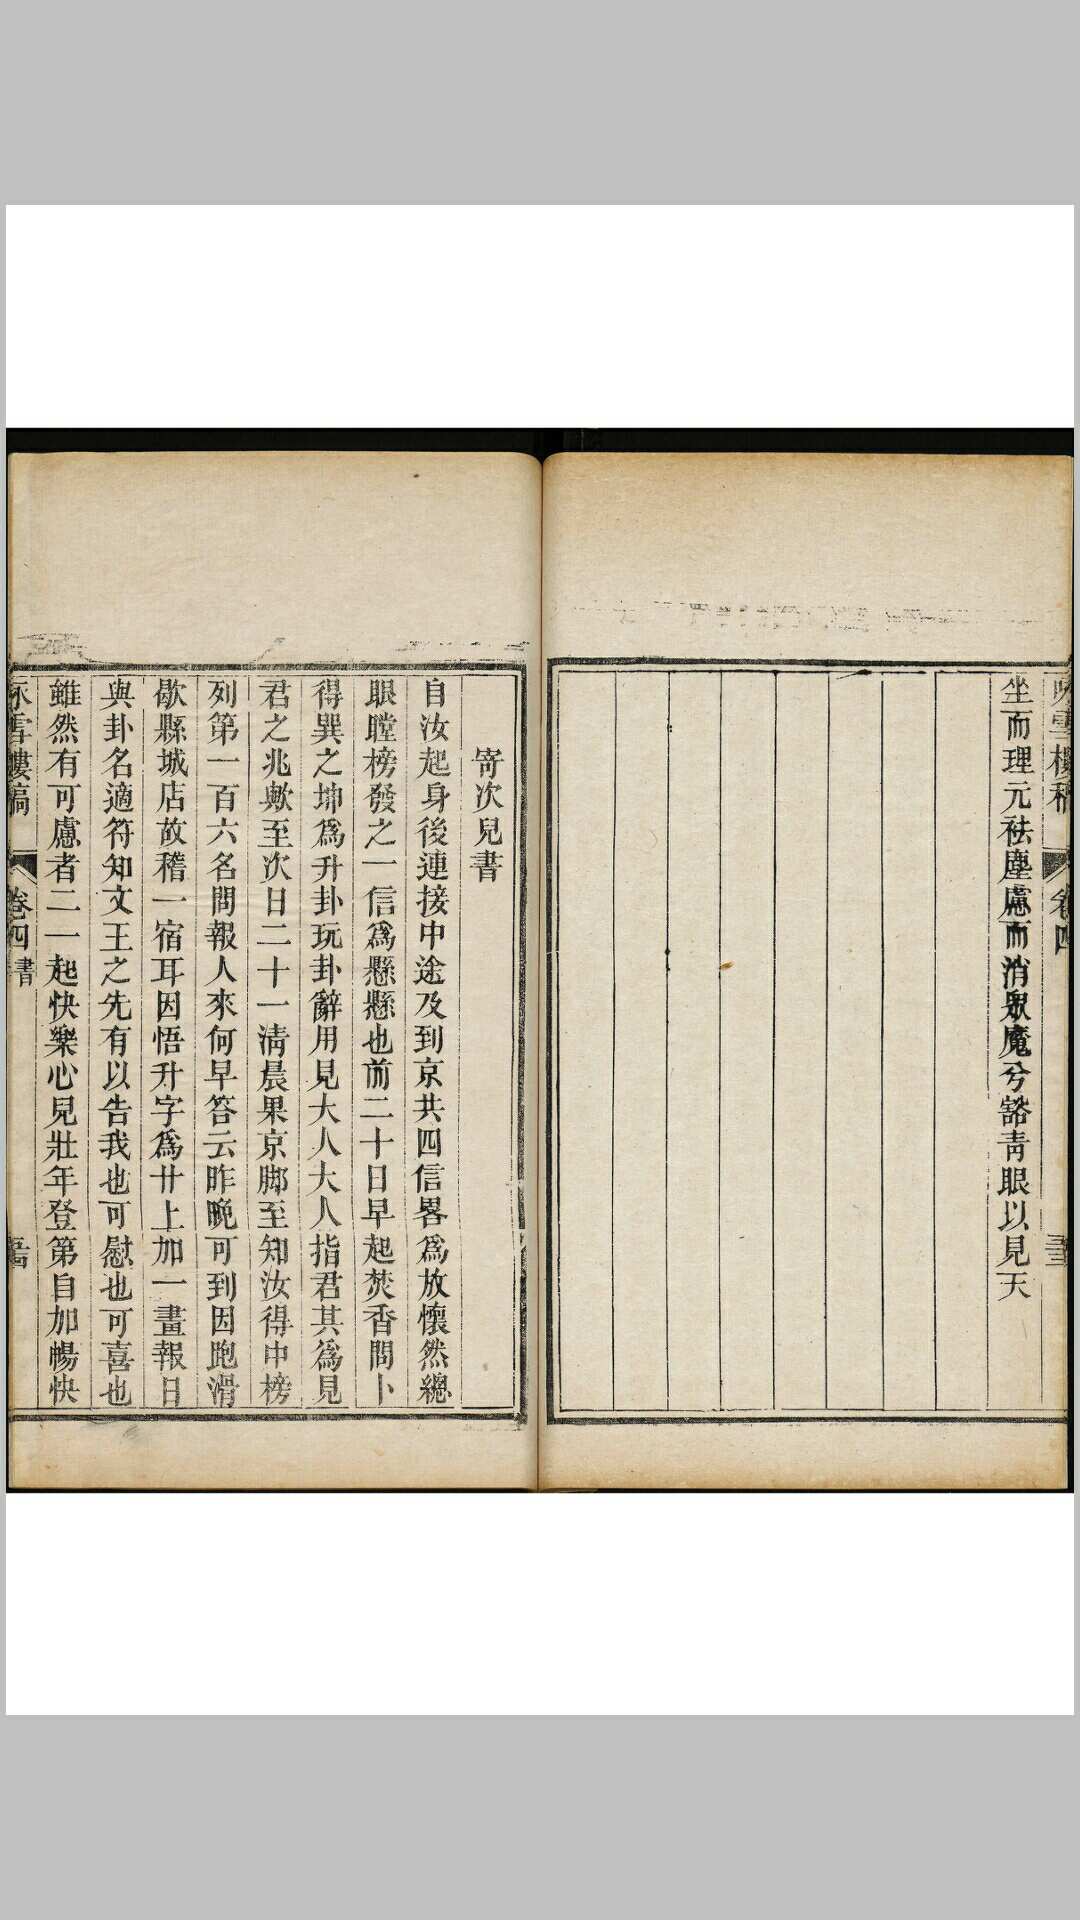 坐而理元祛塵慮而消衆魔兮豁靑眼以見天
寄次兒書
自汝起身後連接中途及到京共四信畧爲放懷然總
眼瞠榜發之一信爲懸懸也前二十日早起焚香問卜
得巽之坤爲升卦玩卦辭用見大人大人指君其爲見
君之兆歟至次日二十一淸晨果京脚至知汝得中榜
列第一百六名問報人來何早答云昨晚可到因跑滑
歇縣城店故稽一宿耳因悟升字爲廿上加一畫報日
與卦名適符知文王之先有以告我也可慰也可喜也
雖然有可慮者二一起快樂心見壯年登第自加暢快
卷四書